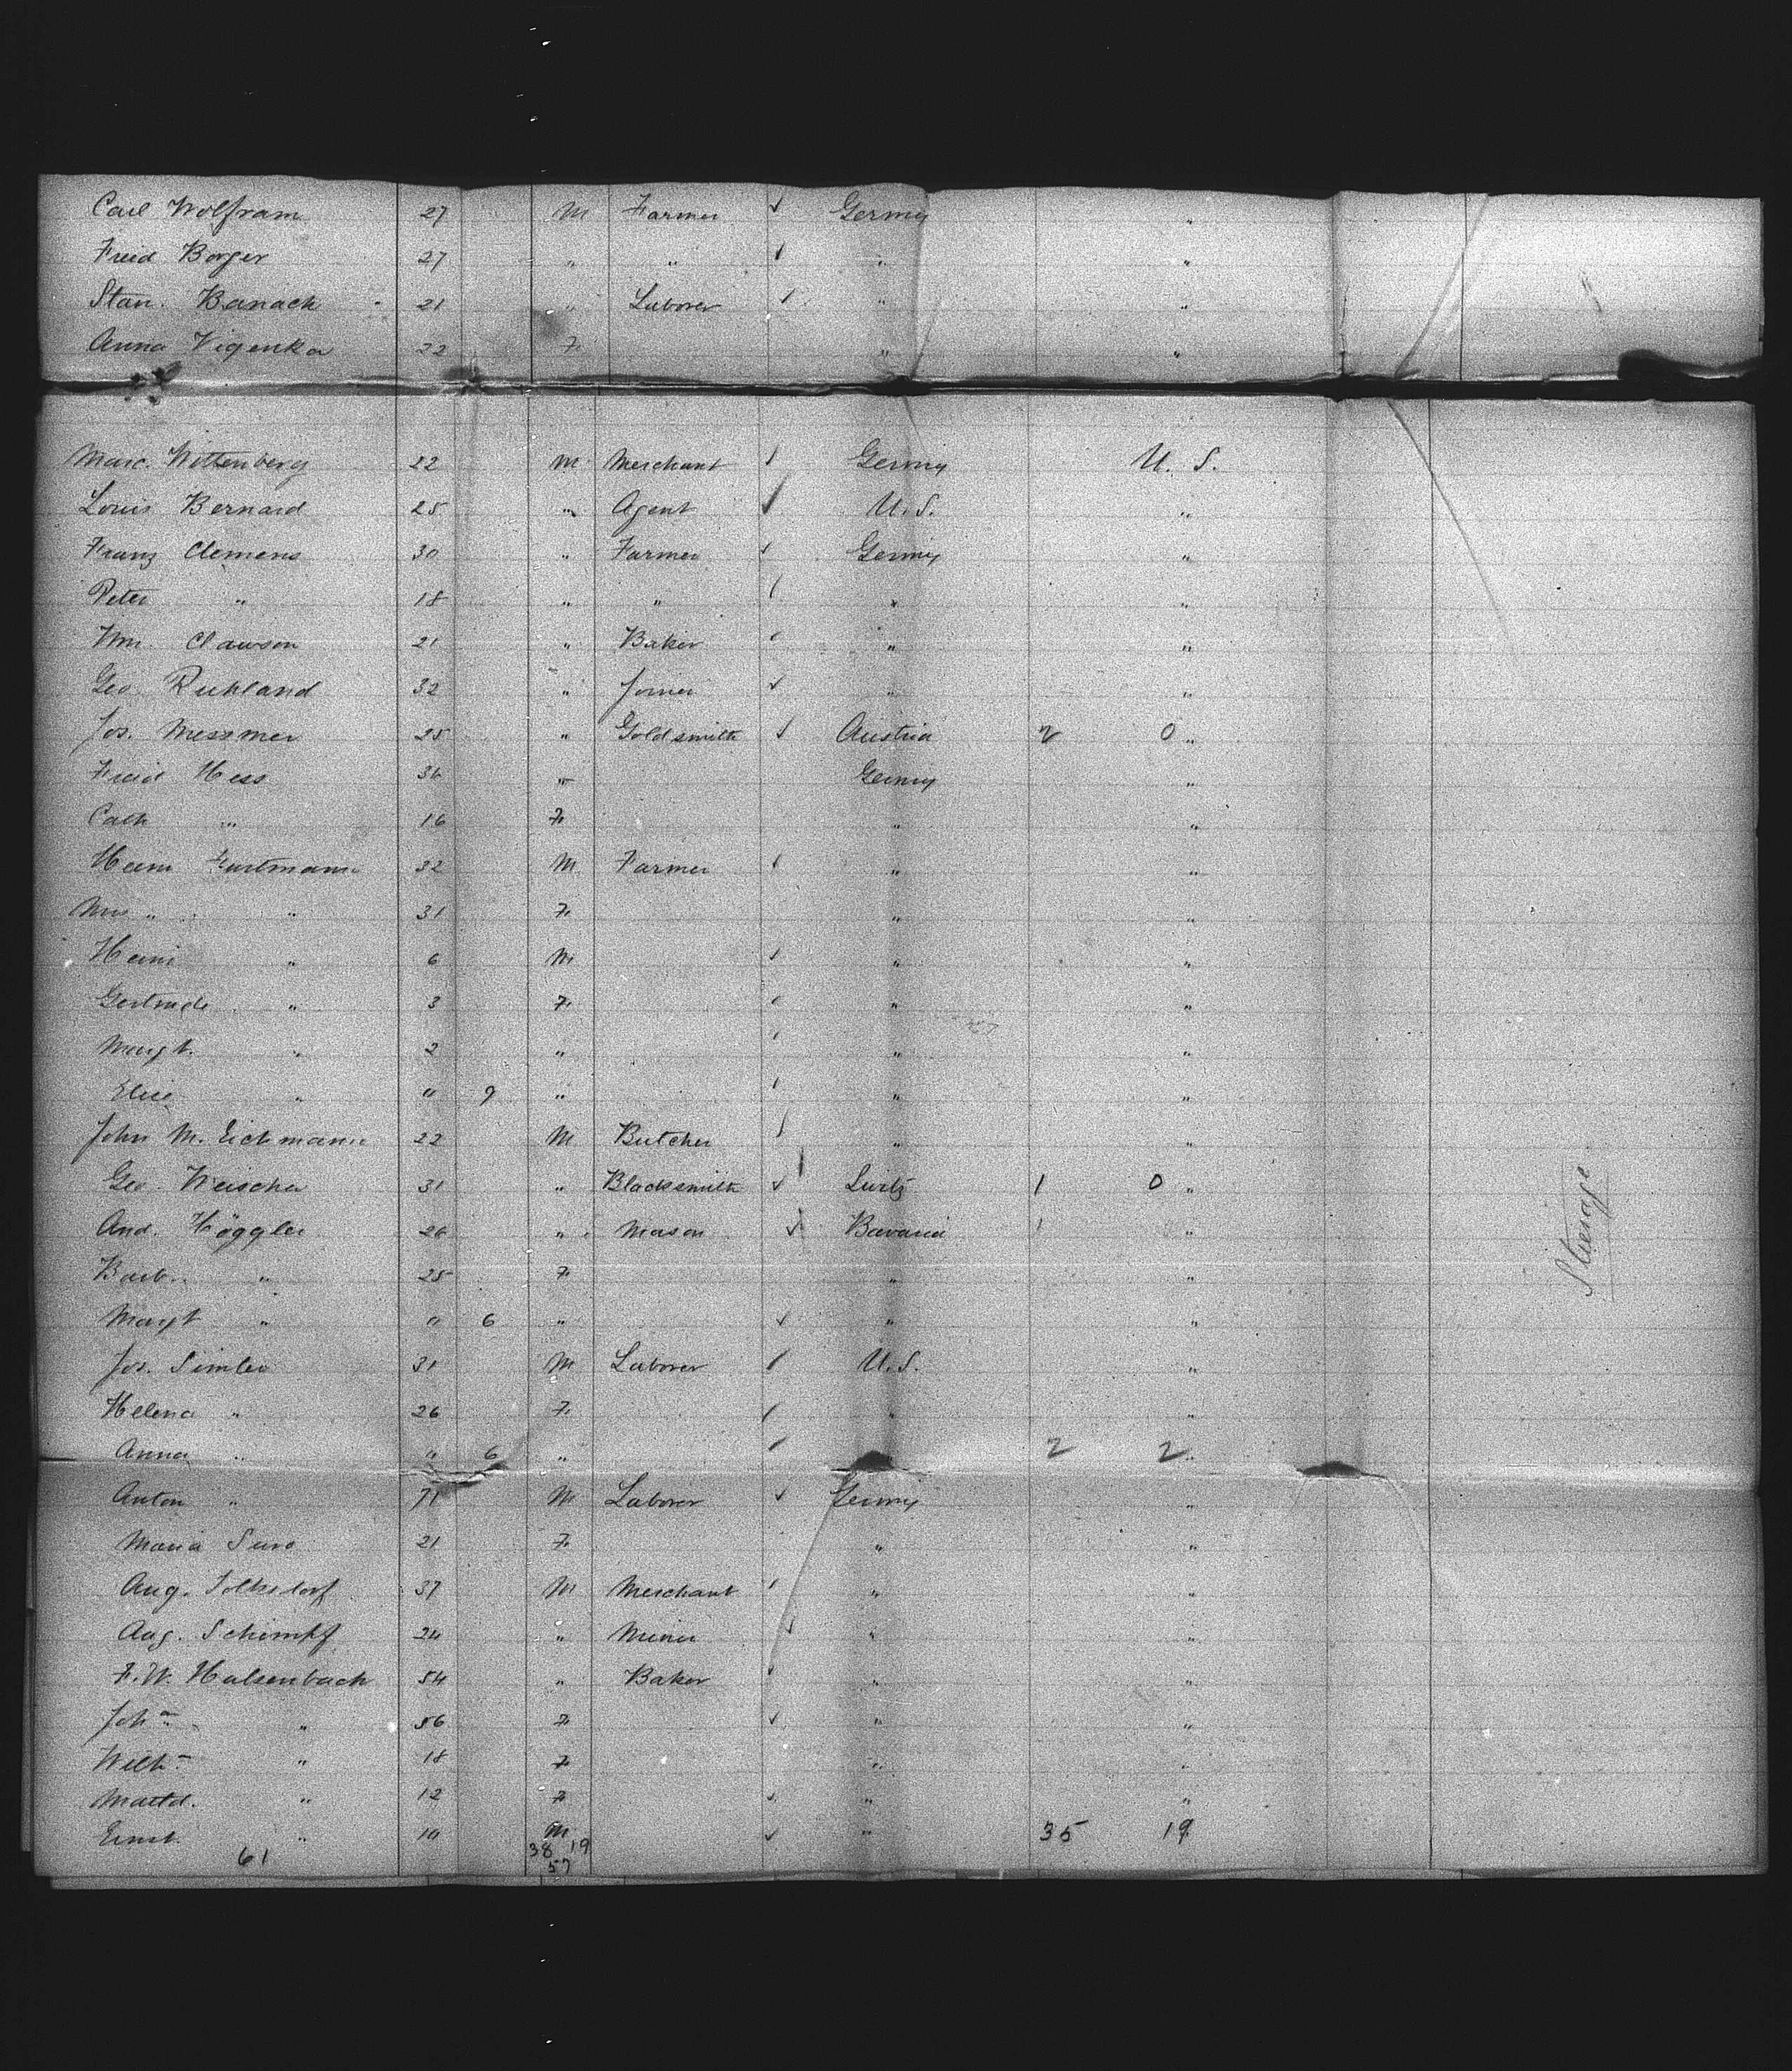 Carl Wolfram 27 M Farmer ✓ Germy "
Fried Borger 27 " " ✓ " "
Stan. Banach - 21 " Laborer ✓ " "
Anna Vigenka 22 F. " "
Marc. Wittenberg 22 M Merchant ✓ Germy U. S.
Louis Bernard 25 " Agent ✓ U. S. "
Franz Clemens 30 " Farmer ✓ Germy "
Peter " 18 " " ✓ " "
Wm. Clawson 21 " Baker ✓ " "
Geo Ruhland 32 " Joiner ✓ " "
Jos. Messmer 25 " Goldsmith ✓ Austria 2 0 "
Fried Hess 36 " Germy "
Cath " 16 F. " "
Heinr 32 M. Farmer ✓ " "
Mrs " " 31 F. " "
Heinr " 6 M. ✓ " "
Gertrude " 3 F. ✓ " "
Margt. " 2 " ✓ " "
Elise " " 9 " ✓ " "
John M. Eickmann 22 M Butcher ✓ " "
Geo. Weischer 31 " Blacksmith ✓ 1 0 "
And. Höggler 26 " Mason ✓ Bavaria 1 "
Barb. " 25 F. " "
Margt " " 6 " ✓ " "
Jos. Simler 31 M Laborer ✓ U. S. "
Helena " 26 F. ✓ " "
Anna " " 6 " ✓ 2 2 "
Anton " 71 M Laborer ✓ Germy "
Maria 21 F. " "
Aug. 37 M Merchant ✓ " "
Aug. Schimpf 24 " Miner ✓ " "
F. W. Halsenbach 54 " Baker ✓ " "
Joha " 56 F ✓ " "
Wilh " 18 F " "
Matd. " 12 F ✓ " "
Ernst. " 10 M ✓ " 35 19
61 38 19
57
Steerage